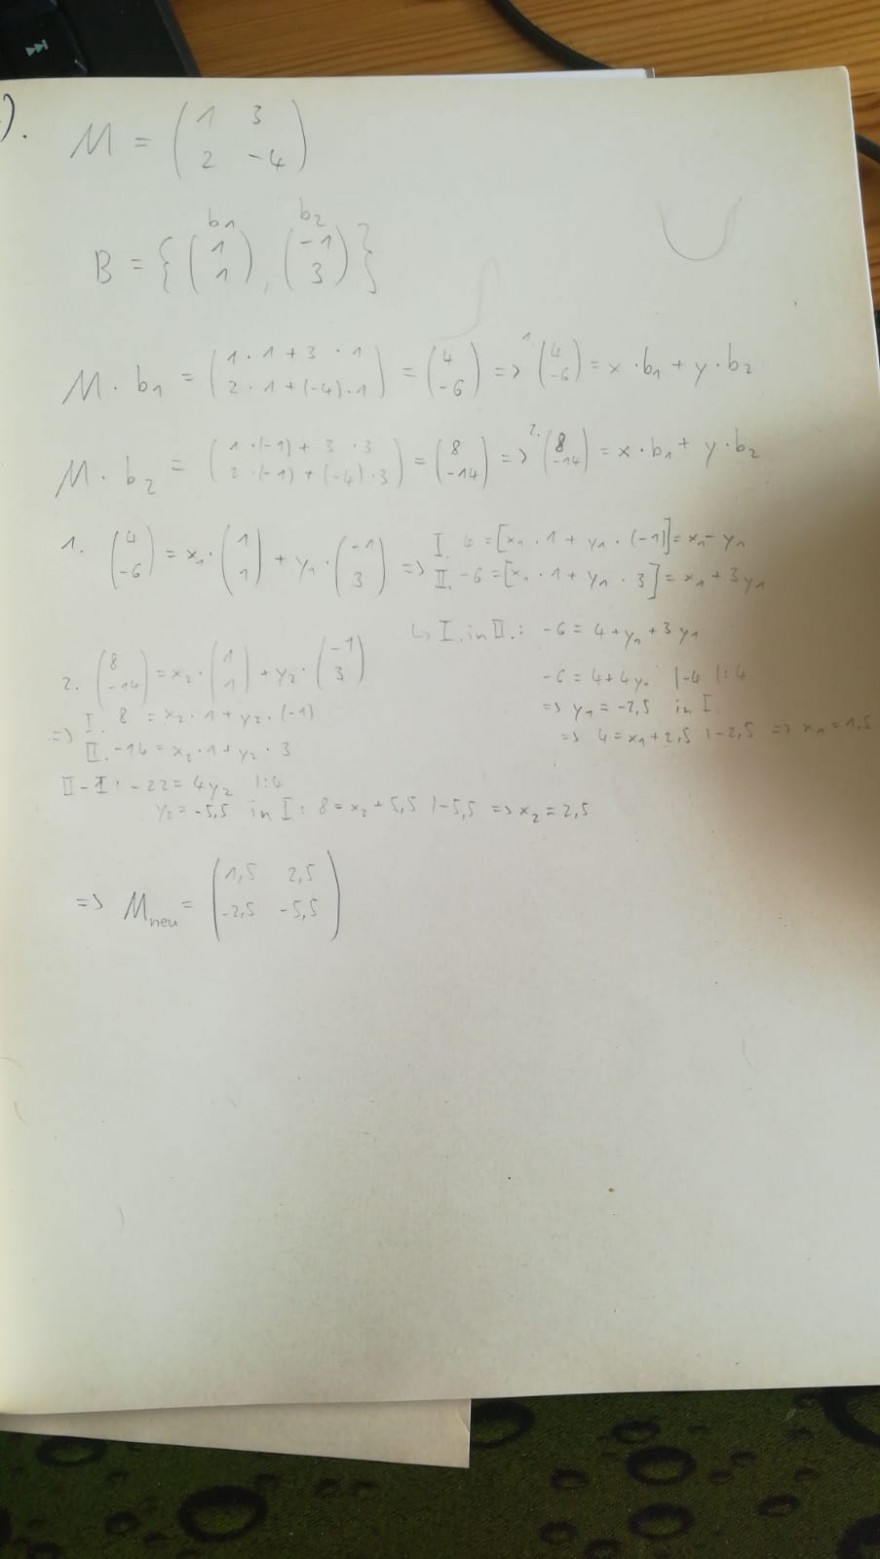 ).
M = ( 1 3
2 -4 )
b1 b2
B = { ( 1
1 ) , ( -1
3 ) }
M · b1 = ( 1 · 1 + 3 · 1
2 · 1 + (-4) · 1 ) = ( 4
-6 ) => 1. ( 4
-6 ) = x · b1 + y · b2
M · b2 = ( 1 · (-1) + 3 · 3
2 · (-1) + (-4) · 3 ) = ( 8
-14 ) => 2. ( 8
-14 ) = x · b1 + y · b2
1. ( 4
-6 ) = x1 · ( 1
1 ) + y1 · ( -1
3 ) => I. 4 = [x1 · 1 + y1 · (-1)] = x1 - y1
II. -6 = [x1 · 1 + y1 · 3] = x1 + 3y1
↳ I. in II.: -6 = 4 + y1 + 3y1
-6 = 4 + 4y1 |-4 |:4
=> y1 = -2,5 in I
=> 4 = x1 + 2,5 |-2,5 => x1 = 1,5
2. ( 8
-14 ) = x2 · ( 1
1 ) + y2 · ( -1
3 )
=> I. 8 = x2 · 1 + y2 · (-1)
II. -14 = x2 · 1 + y2 · 3
II - I: -22 = 4y2 |:4
y2 = -5,5 in I: 8 = x2 + 5,5 |-5,5 => x2 = 2,5
=> Mneu = ( 1,5 2,5
-2,5 -5,5 )